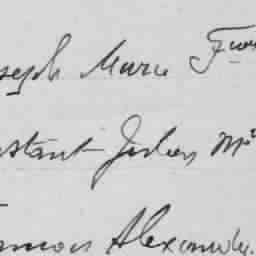 seph Marie Fran
nstant Julien M
ancois Alexandre